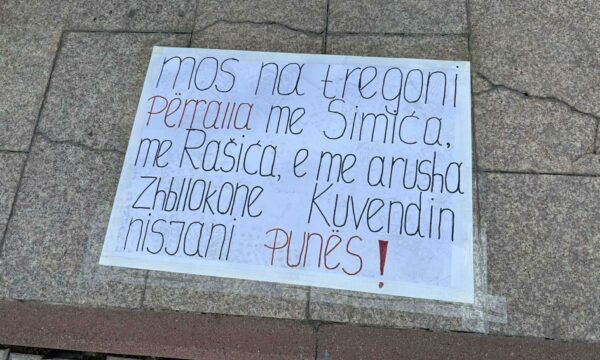 mos na tregoni
Përralla me Simića,
me Rašića, e me arusha
Zhbllokone Kuvendin
nisjani PUNËS!